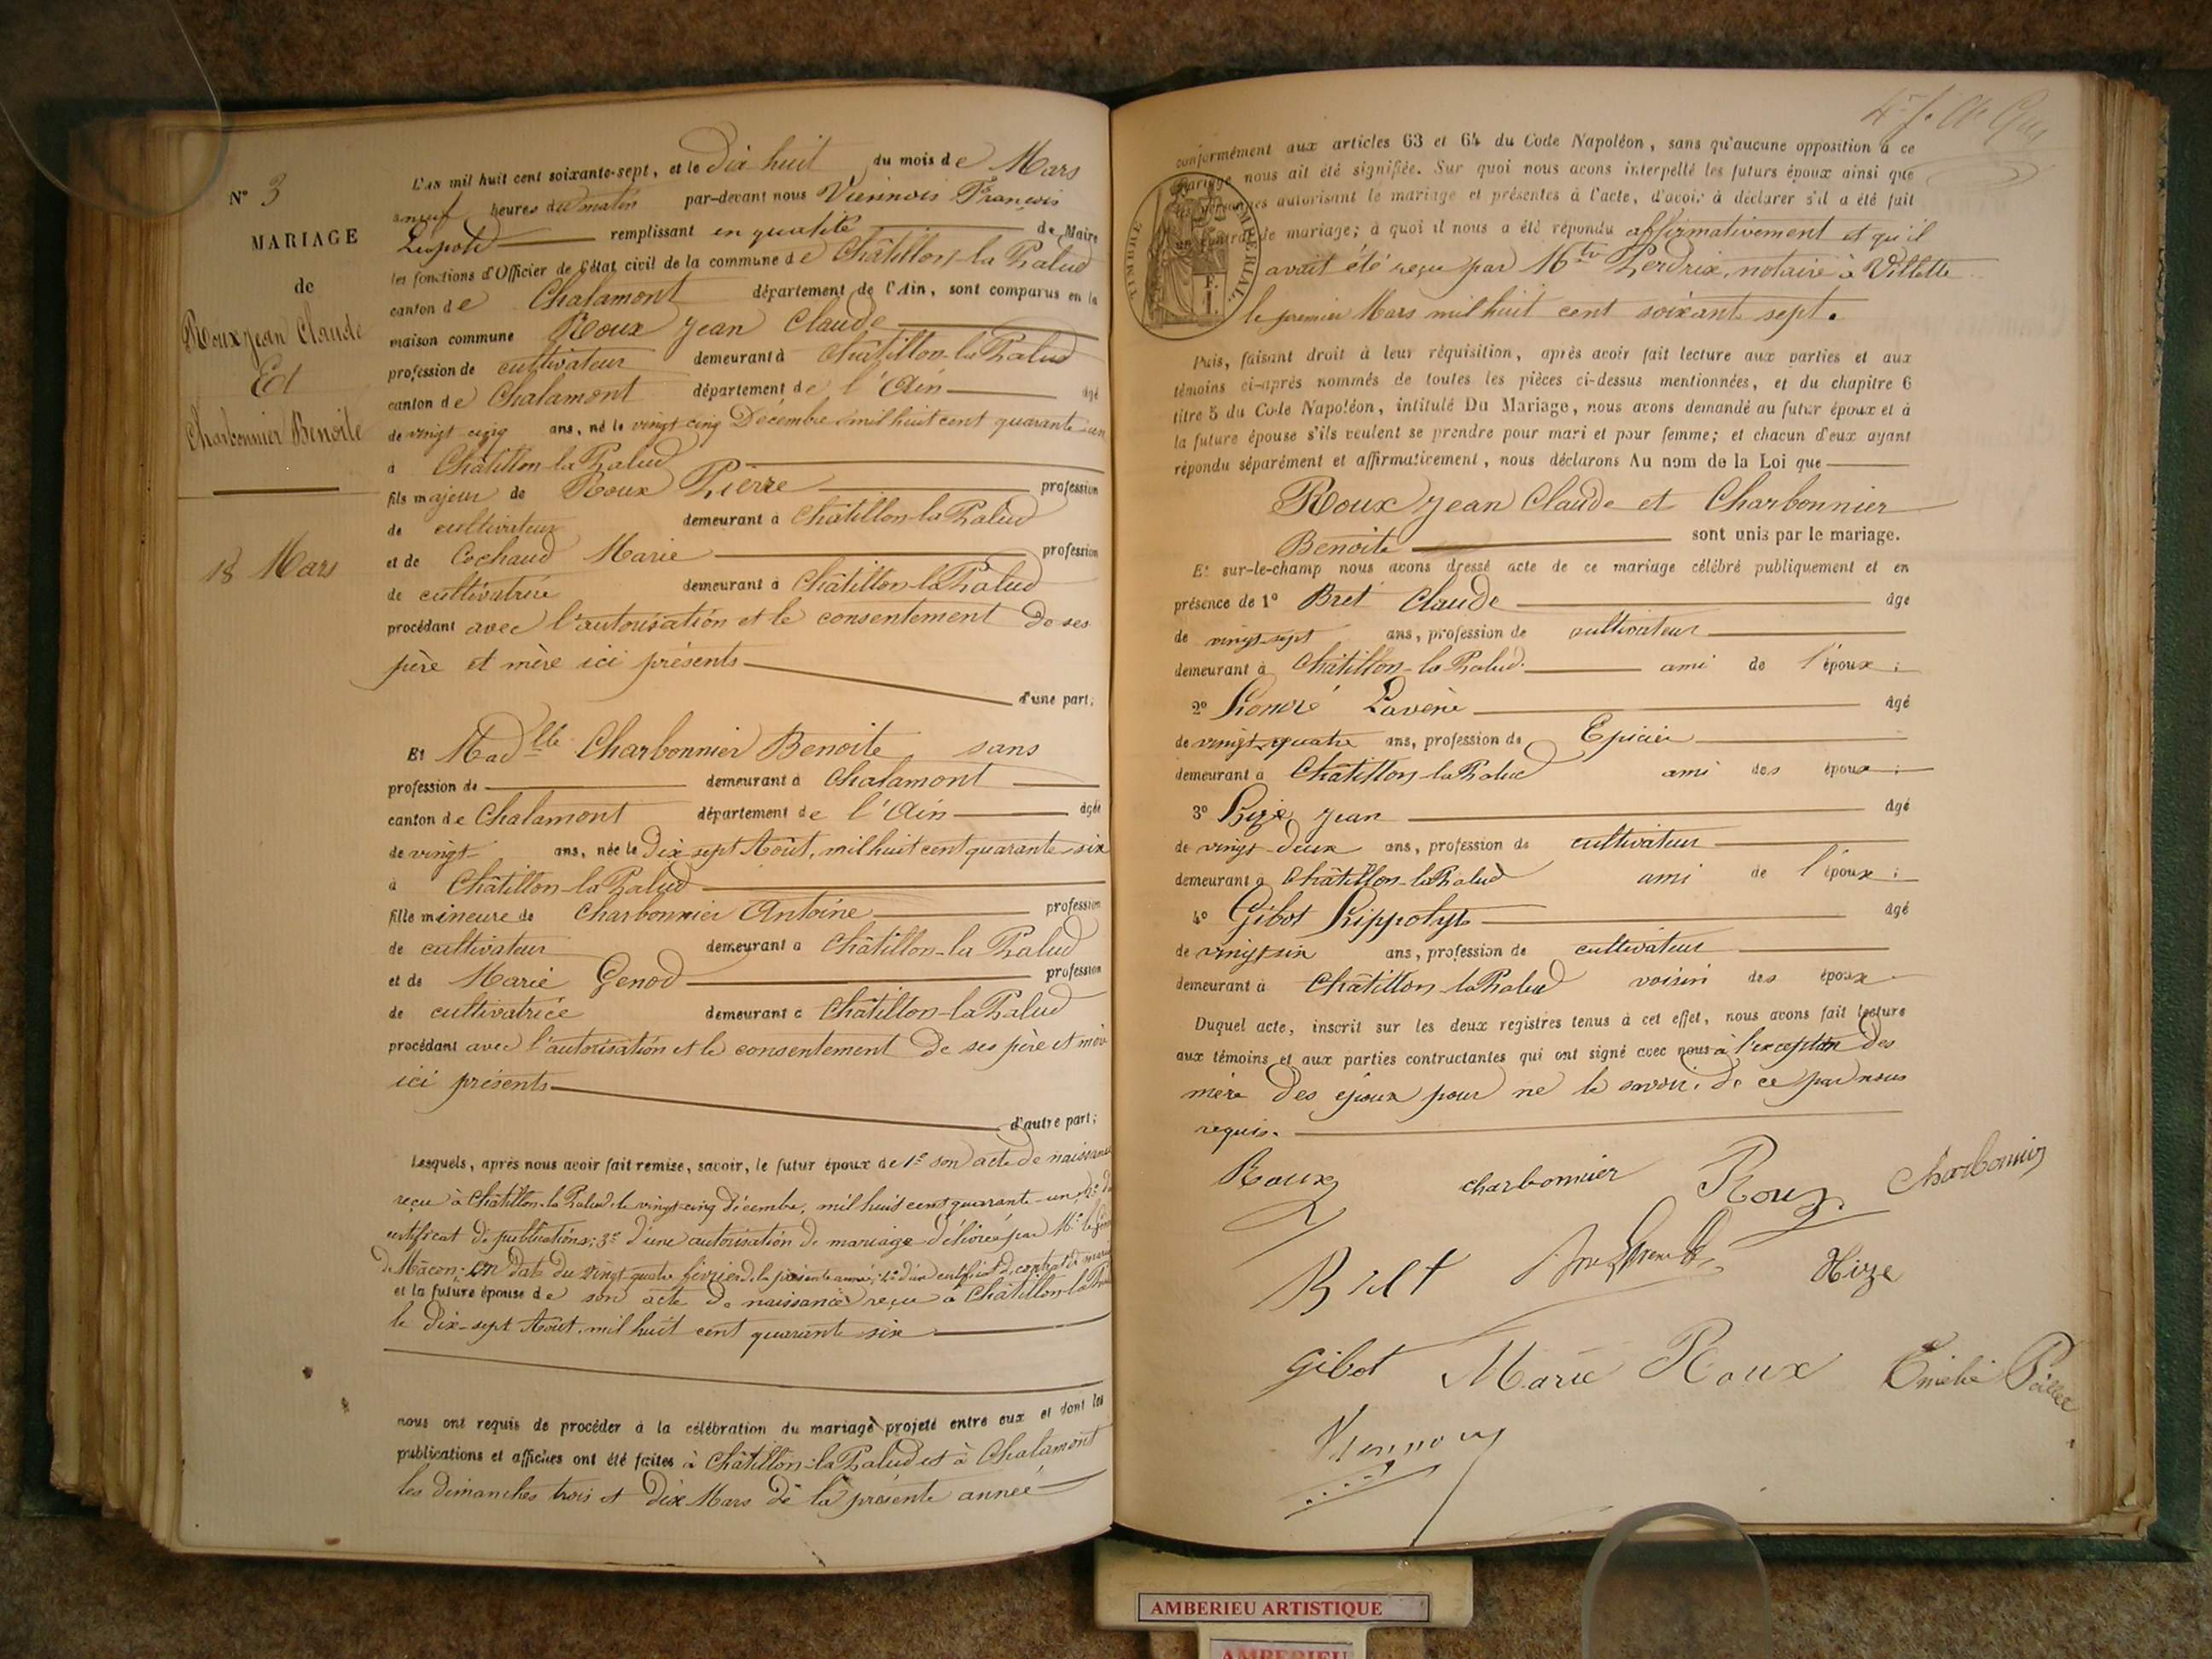 N° 3
MARIAGE
de
Roux Jean Claude
Et
Charbonnier Benoite
18 Mars
L'AN mil huit cent soixante-sept, et le dix huit du mois de Mars
a neuf heures du matin par-devant nous Viennois François
Léopold remplissant en qualité de Maire
les fonctions d'Officier de l'état civil de la commune de Châtillon-la-Palud
canton de Chalamont département de l'Ain, sont comparus en la
maison commune Roux Jean Claude
profession de cultivateur demeurant à Châtillon-la-Palud
canton de Chalamont département de l'Ain âgé
de vingt cinq ans, né le vingt-cinq Décembre mil huit cent quarante-un
à Châtillon-la-Palud
fils majeur de Roux Pierre profession
de cultivateur demeurant à Châtillon-la-Palud
et de Cochaud Marie profession
de cultivatrice demeurant à Châtillon-la-Palud
procédant avec l'autorisation et le consentement de ses
père et mère ici présents
d'une part;
Et Mad.lle Charbonnier Benoite, sans
profession de demeurant à Chalamont
canton de Chalamont département de l'Ain âgée
de vingt ans, née le Dix sept Août, mil huit cent quarante-six
à Châtillon-la-Palud
fille mineure de Charbonnier Antoine profession
de cultivateur demeurant à Châtillon-la-Palud
et de Marie Genod profession
de cultivatrice demeurant à Châtillon-la-Palud
procédant avec l'autorisation et le consentement de ses père et mère
ici présents
d'autre part;
Lesquels, après nous avoir fait remise, savoir, le futur époux de 1° son acte de naissance
reçu à Châtillon-la-Palud le vingt-cinq Décembre, mil huit cent quarante-un, 2° du
certificat de publications; 3° d'une autorisation de mariage délivrée par Mr le
de Mâcon, en date du vingt quatre février de la présente année; 4° d'un certificat de contrat de
et la future épouse de son acte de naissance reçu à Châtillon-la-
le dix-sept Août, mil huit cent quarante six
nous ont requis de procéder à la célébration du mariage projeté entre eux et dont les
publications et affiches ont été faites à Châtillon-la-Palud et à Chalamont
les dimanches trois et dix Mars de la présente année
conformément aux articles 63 et 64 du Code Napoléon, sans qu'aucune opposition à ce
mariage nous ait été signifiée. Sur quoi nous avons interpellé les futurs époux ainsi que
les personnes autorisant le mariage et présentes à l'acte, d'avoir à déclarer s'il a été fait
un contrat de mariage; à quoi il nous a été répondu affirmativement et qu'il
avait été reçu par Mtre Perdrix, notaire à Villette
le premier Mars mil huit cent soixante sept.
TIMBRE IMPERIAL
Puis, faisant droit à leur réquisition, après avoir fait lecture aux parties et aux
témoins ci-après nommés de toutes les pièces ci-dessus mentionnées, et du chapitre 6
titre 5 du Code Napoléon, intitulé Du Mariage, nous avons demandé au futur époux et à
la future épouse s'ils veulent se prendre pour mari et pour femme; et chacun d'eux ayant
répondu séparément et affirmativement, nous déclarons Au nom de la Loi que
Roux Jean Claude et Charbonnier
Benoite sont unis par le mariage.
Et sur-le-champ nous avons dressé acte de ce mariage célébré publiquement et en
présence de 1° Bret Claude âgé
de vingt-sept ans, profession de cultivateur
demeurant à Châtillon-la-Palud. ami de l'époux;
2° Honoré âgé
de vingt-quatre ans, profession de Epicier
demeurant à Châtillon-la-Palud ami des époux;
3° Hize Jean âgé
de vingt-deux ans, profession de cultivateur
demeurant à Châtillon-la-Palud ami de l'époux;
4° Gibot Hippolyte âgé
de vingt six ans, profession de cultivateur
demeurant à Châtillon-la-Palud voisin des époux
Duquel acte, inscrit sur les deux registres tenus à cet effet, nous avons fait lecture
aux témoins et aux parties contractantes qui ont signé avec nous à l'exception des
mère des époux pour ne le savoir. de ce par nous
requis.
Roux charbonnier Roux Charbonnier
Bret Hize
Gibot Marie Roux Emélie
Viennois
AMBERIEU ARTISTIQUE
AMBERIEU